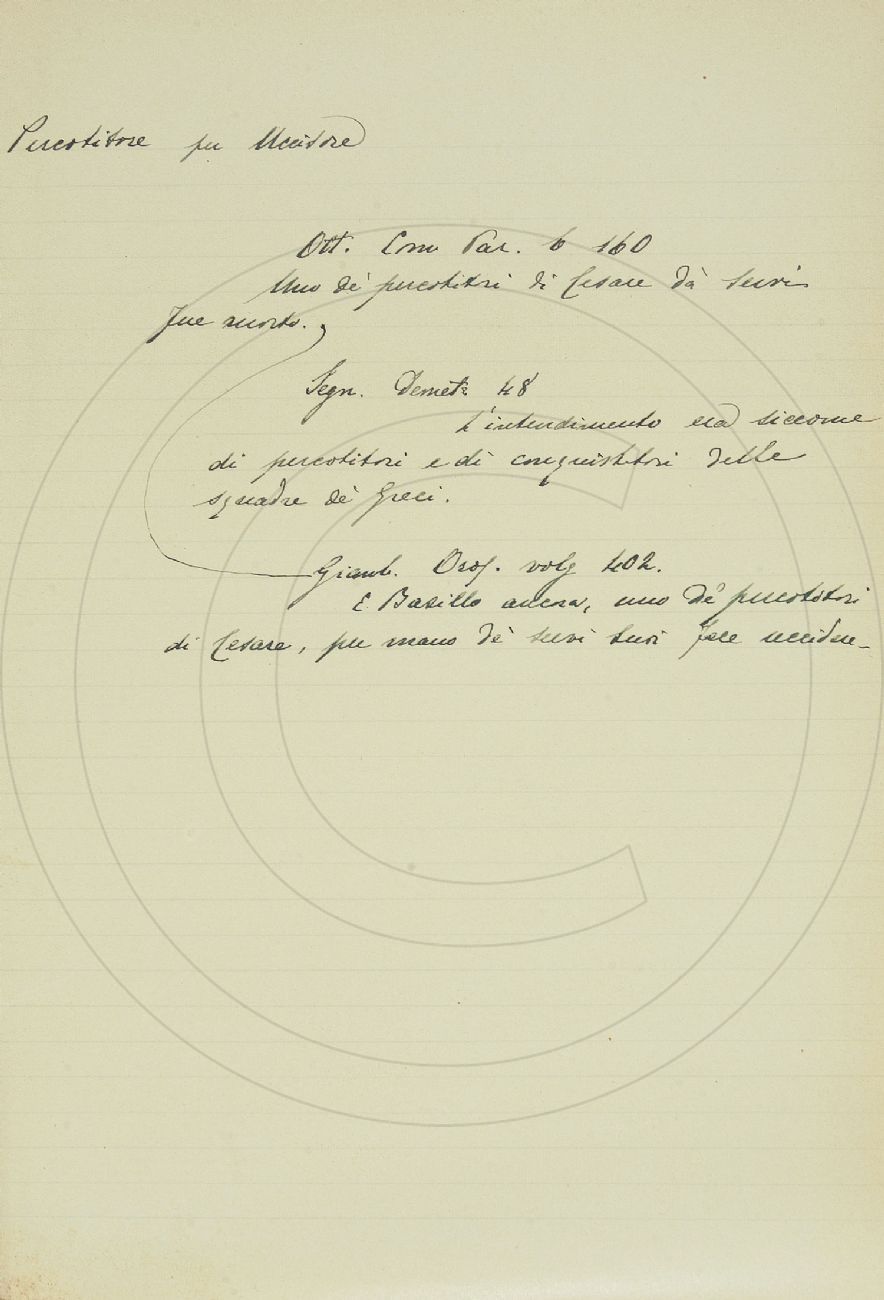 Percotitore per Uccisore
Ott. Com Par. 6 160
Uno de' percotitori di Cesare dà servi
fue morto.
Segn. Demetr 48
L'intendimento era siccome
di percotitori e di conquistatori delle
squadre de' Greci.
Giamb. Oros. volg 402.
E Basillo ancora, uno de' percotitori
di Cesare, per mano de' servi suoi fue ucciden_